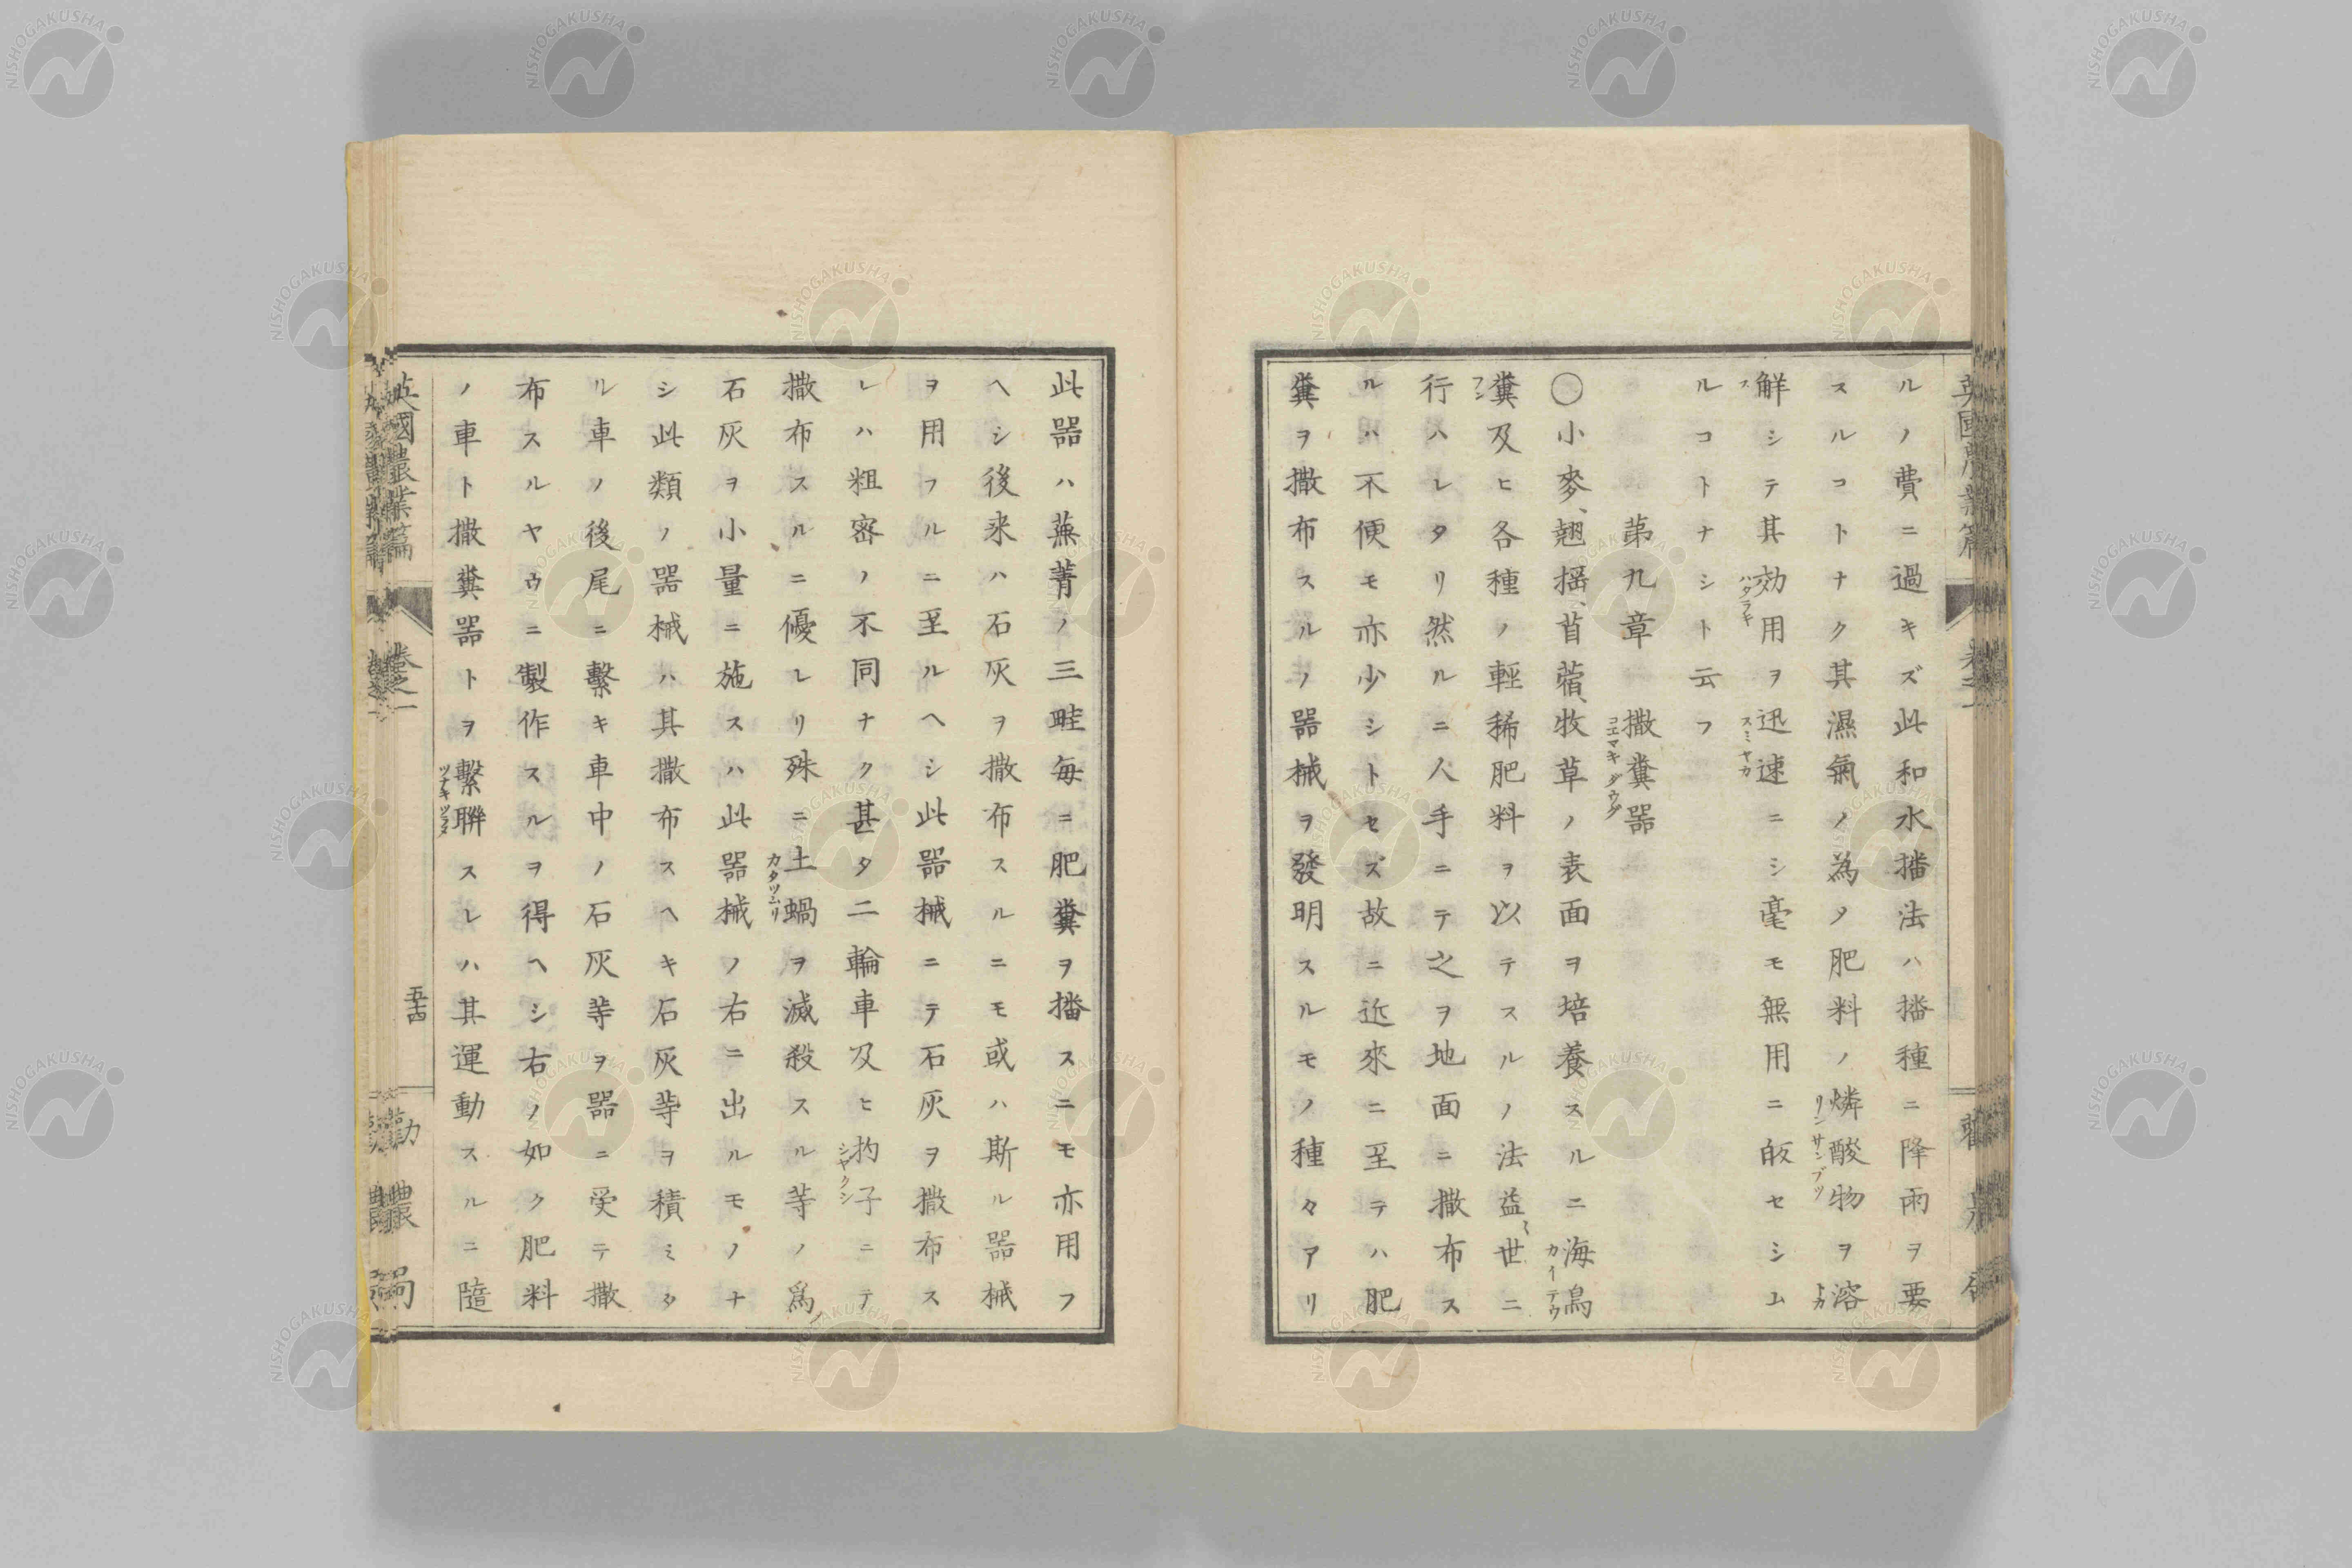 ルノ費ニ過キズ此和水播法ハ播種ニ降雨ヲ要
スルコトナク其濕氣ノ為メ肥料ノ燐酸物ヲ溶
リンサンブツ
トカ
解シテ其効用ヲ迅速ニシ毫モ無用ニ皈セシム
ス
ハタラキ
スミヤカ
ルコトナシト云フ
第九章 撒糞器
コエマキダウグ
〇小麥、翹揺、苜蓿、牧草ノ表面ヲ培養スルニ海鳥
カイテウ
糞及ヒ各種ノ輕稀肥料ヲ以テスルノ法益〻世ニ
フン
行ハレタリ然ルニ人手ニテ之ヲ地面ニ撒布ス
ルハ不便モ亦少シトセズ故ニ近來ニ至テハ肥
糞ヲ撒布スルノ器械ヲ發明スルモノ種々アリ
此器ハ蕪菁ノ三畦毎ニ肥糞ヲ播スニモ亦用フ
ヘシ後来ハ石灰ヲ撒布スルニモ或ハ斯ル器械
ヲ用フルニ至ルヘシ此器械ニテ石灰ヲ撒布ス
レハ粗密ノ不同ナク甚タ二輪車及ヒ杓子ニテ
シヤクシ
撒布スルニ優レリ殊ニ土蝸ヲ滅殺スル等ノ爲
カタツムリ
石灰ヲ小量ニ施スハ此器械ノ右ニ出ルモノナ
シ此類ノ器械ハ其撒布スヘキ石灰等ヲ積ミタ
ル車ノ後尾ニ繫キ車中ノ石灰等ヲ器ニ受テ撒
布スルヤウニ製作スルヲ得ヘシ右ノ如ク肥料
ノ車ト撒糞器トヲ繫聯スレハ其運動スルニ隨
ツナキツラヌ
英國農業篇 卷之一 五十四 勸農局